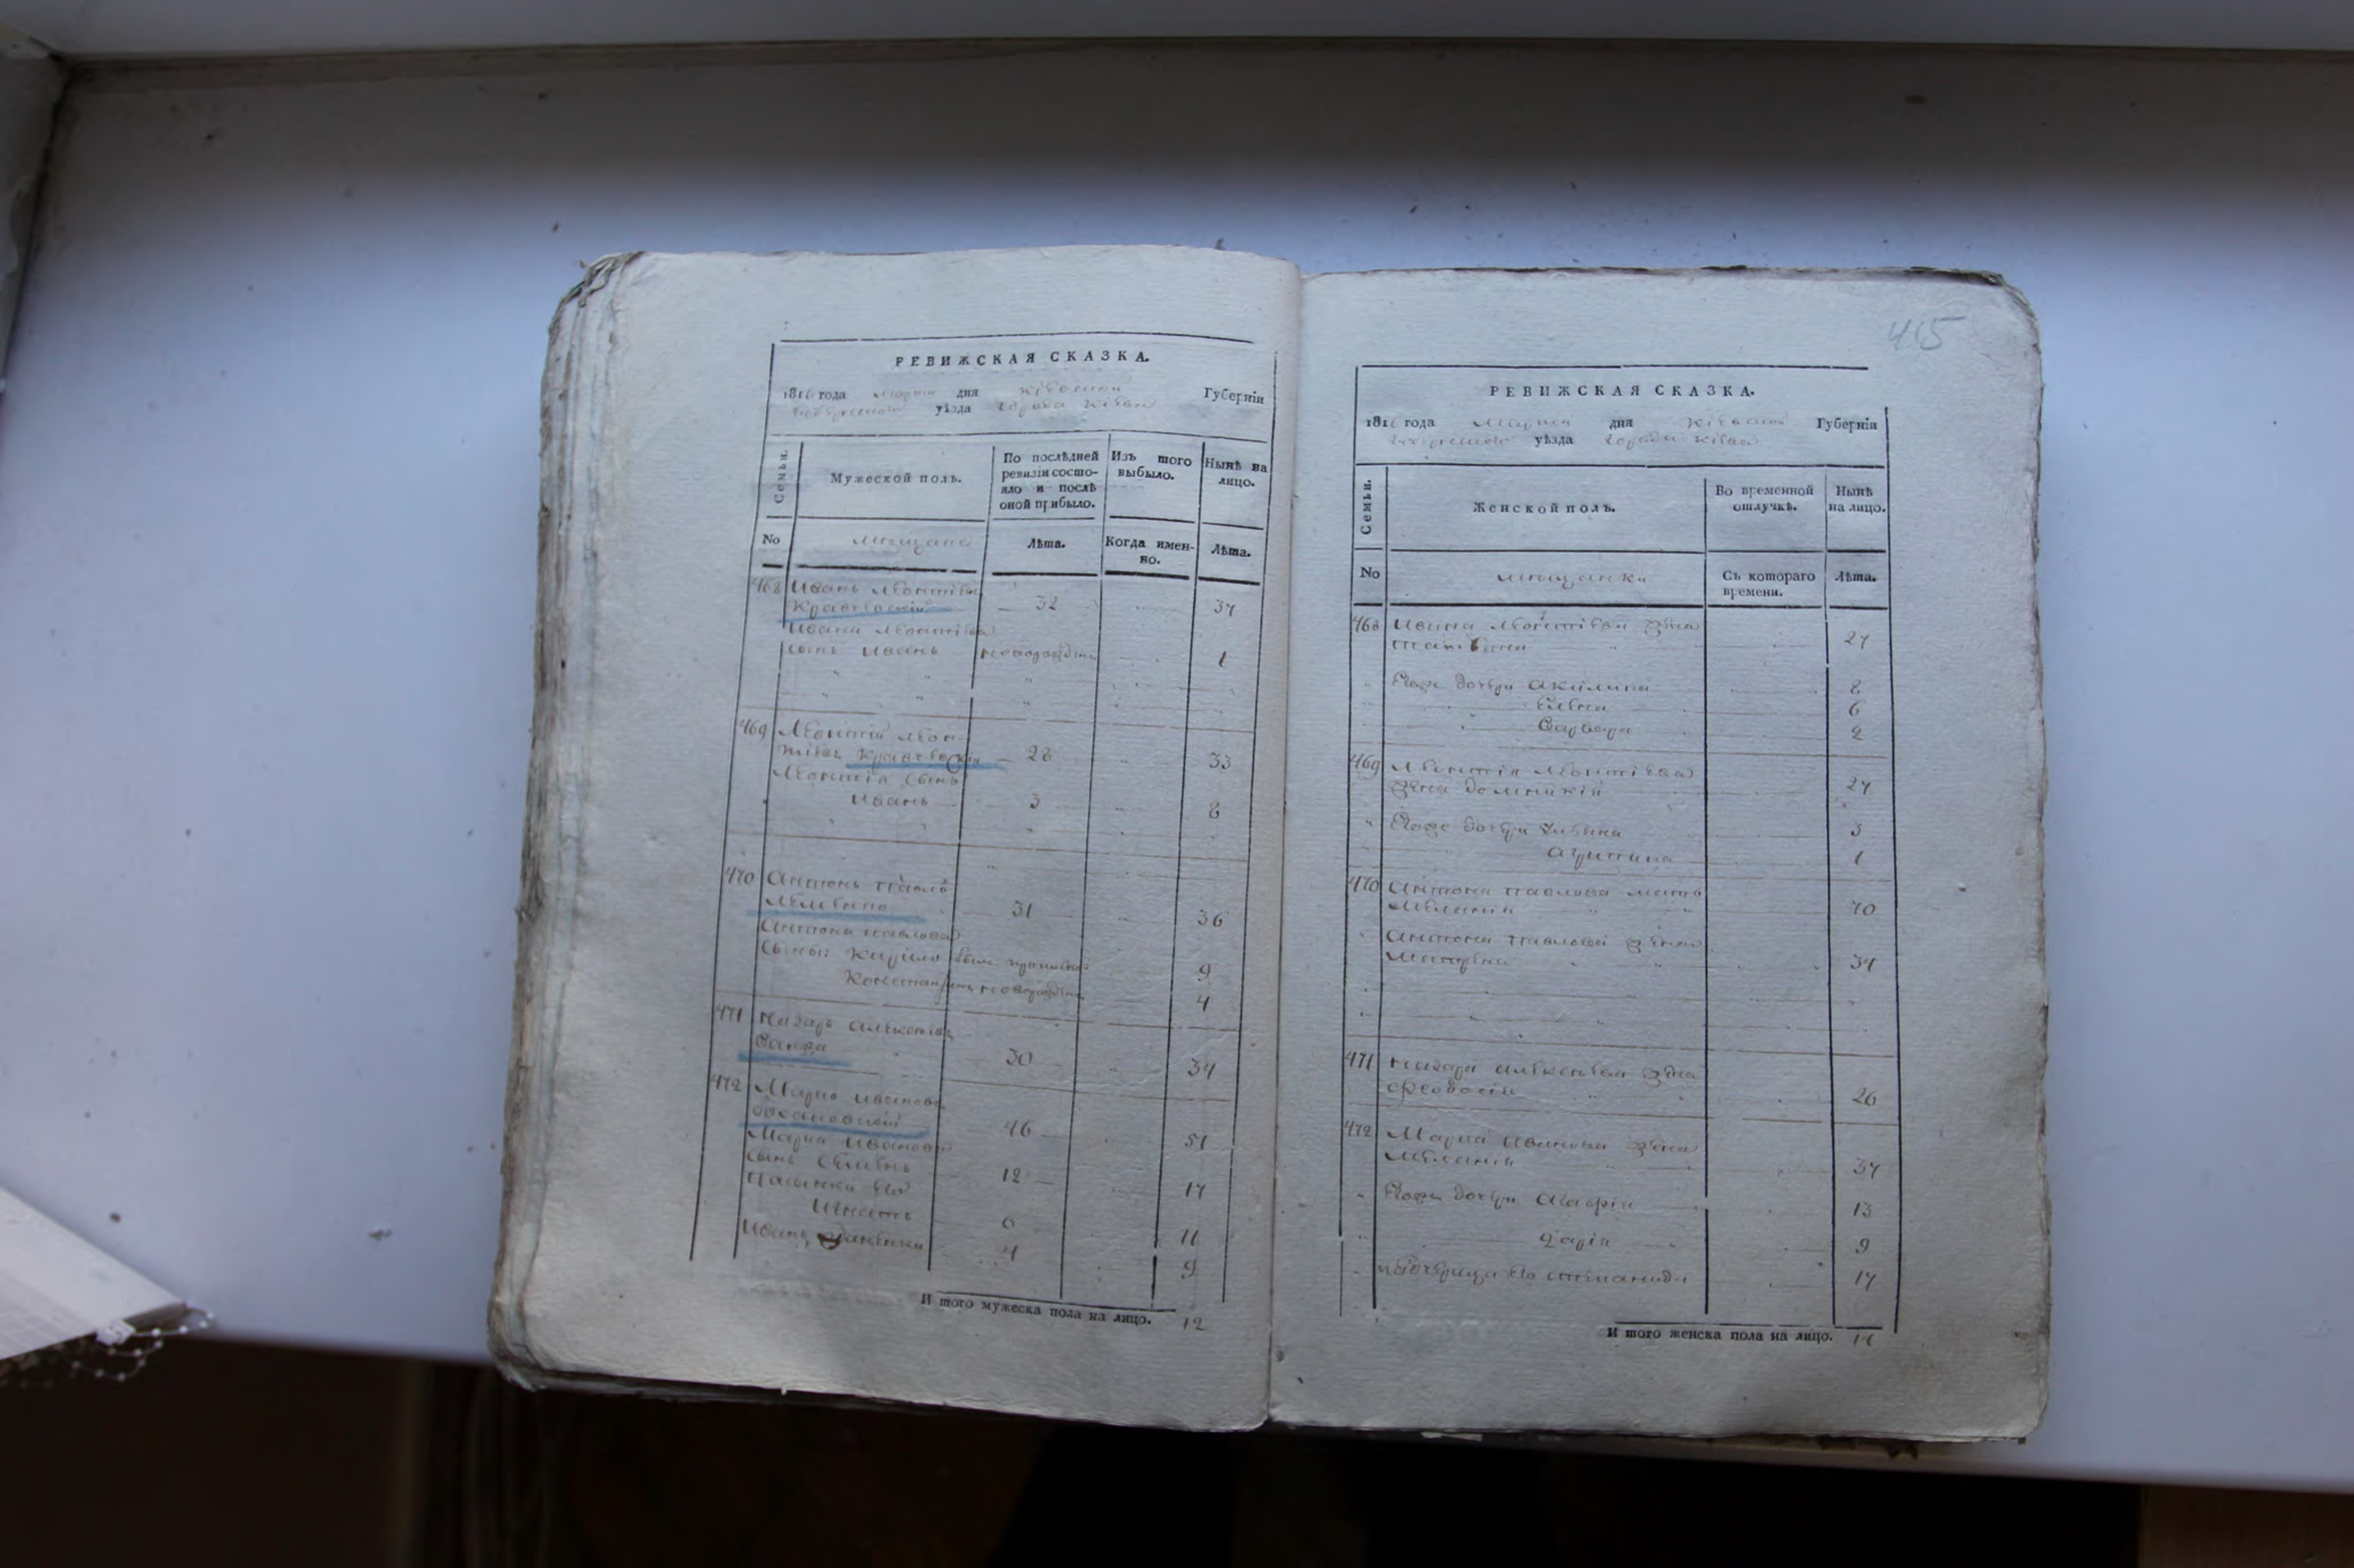 РЕВИЖСКАЯ СКАЗКА.
1816 года Марта дня Кіевской Губерніи
уѣзда города Кіева
Семьи. Мужеской полъ. По послѣдней ревизіи состояло и послѣ оной прибыло. Изъ того выбыло. Нынѣ на лицо.
No мещане Лѣта. Когда именно. Лѣта.
468 Иванъ Леонтіевъ
Кравчевскій 32 37
Ивана Леонтіева
сынъ Иванъ новорожден 1
469 Леонтій Леон-
тіевъ Кравчевскій 28 33
Леонтія сынъ
Иванъ 3 8
470 Антонъ Павловъ
31 36
Антона Павлова
сыны: Кирило былъ прописан 9
Константинъ новорожден 4
471 Назаръ Алексіевъ
Ганжа 30 34
472 Марко Ивановъ
46 51
Марка Иванова
сынъ Семенъ 12 17
Пасынки его
Игнатъ 6 11
Иванъ 4 9
И того мужеска пола на лицо. 12
415
РЕВИЖСКАЯ СКАЗКА.
1816 года Марта дня Кіевской Губерніи
уѣзда города Кіева
Семьи. Женской полъ. Во временной отлучкѣ. Нынѣ на лицо.
No мещанки Съ котораго времени. Лѣта.
468 Ивана Леонтіева жена
Татіяна 27
Егоже дочери Акилина 8
Елена 6
Варвара 2
469 Леонтія Леонтіева
жена Домникія 27
Егоже дочери 3
Агрипина 1
470 Антона Павлова мать
Меланія 70
Антона Павлова жена
Матрена 34
471 Назара Алексіева жена
Феодосія 26
472 Марка Иванова жена
Меланія 37
Егоже дочери 13
Дарія 9
падчерица его Степанида 17
И того женска пола на лицо. 14